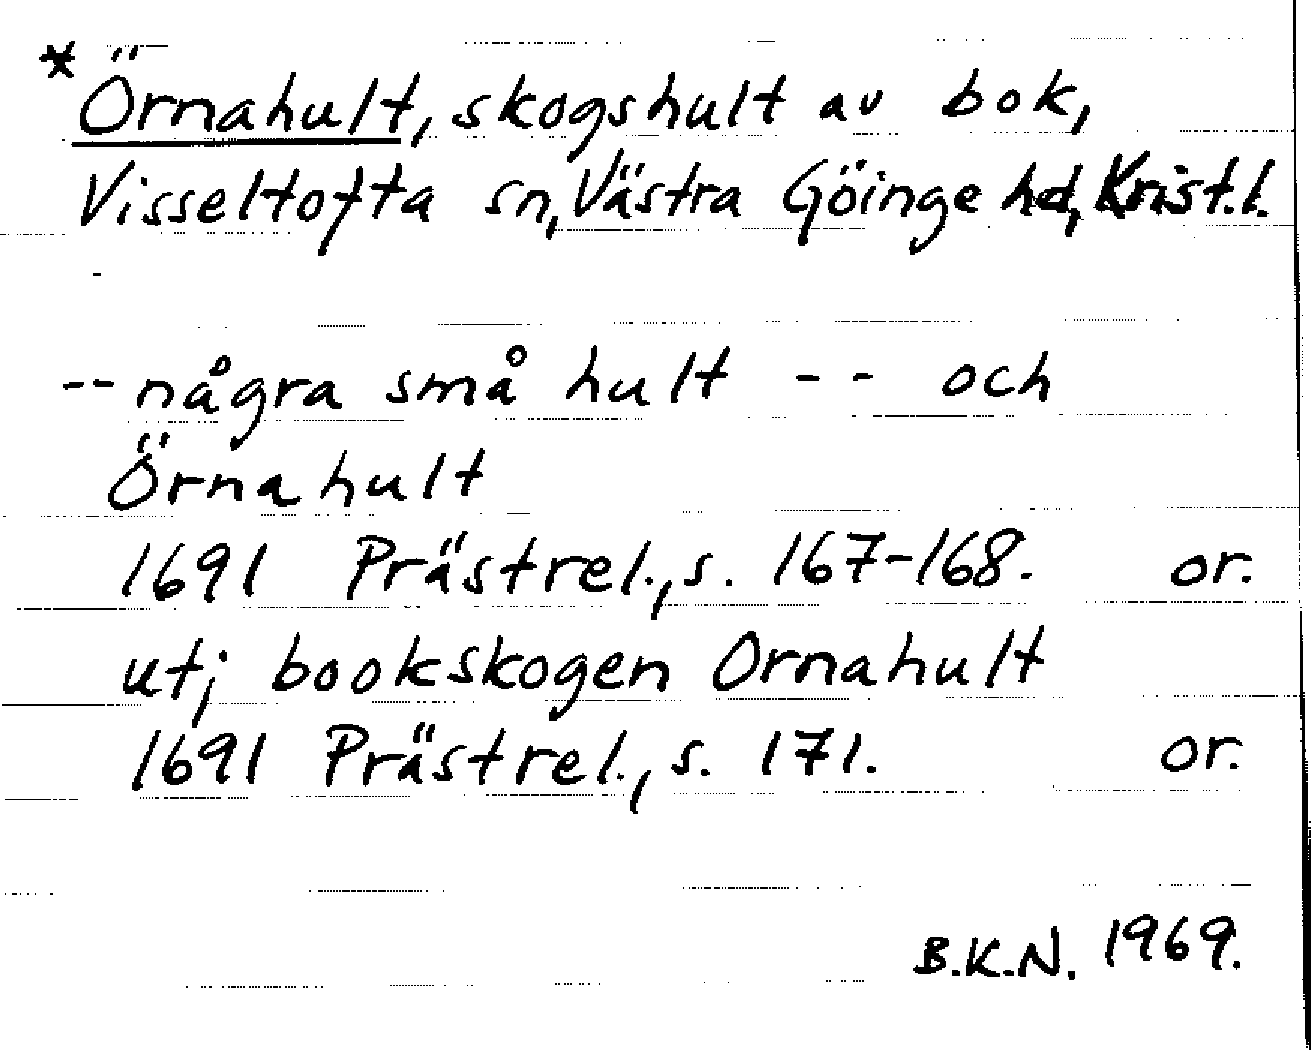 * Örnahult, skogshult av bok,
Visseltofta sn, Västra Göinge hd, Krist.l.
-- några små hult -- och
Örnahult
1691 Prästrel., s. 167-168. or.
utj bookskogen Ornahult
1691 Prästrel., s. 171. or.
B.K.N. 1969.